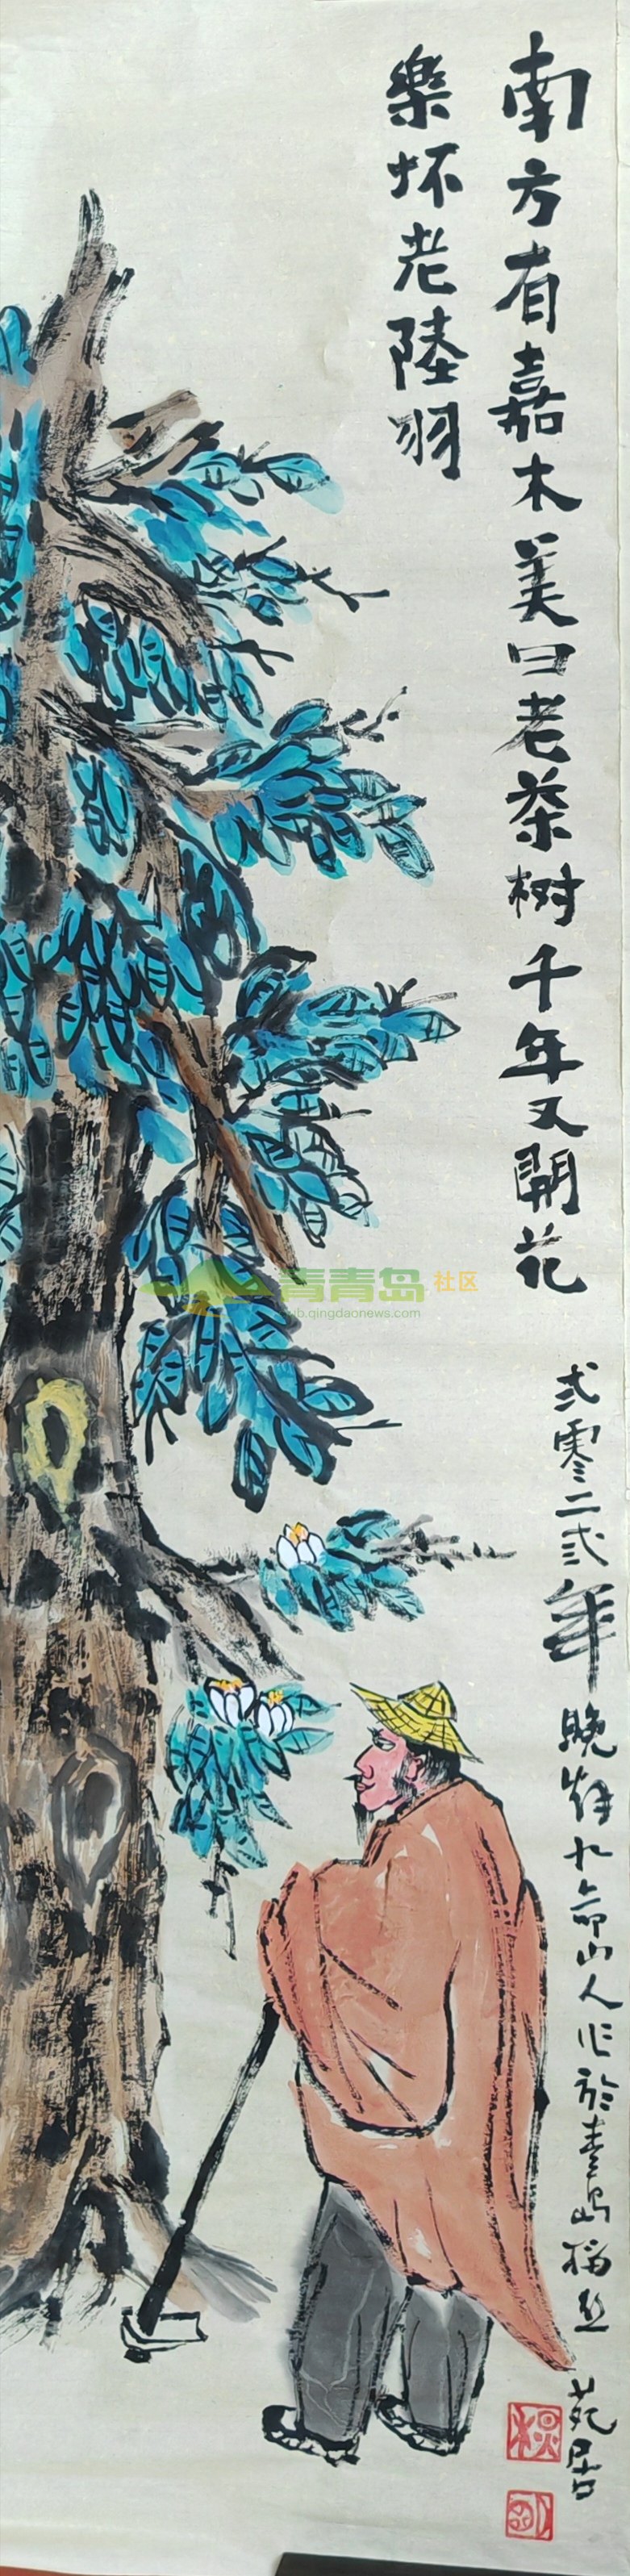 南方有嘉木美曰老茶树千年又開花
樂坏老陸羽
弍零二弍年晚秋九命山人作於青岛福
苑居
青青岛社区
ub.qingdaonews.com